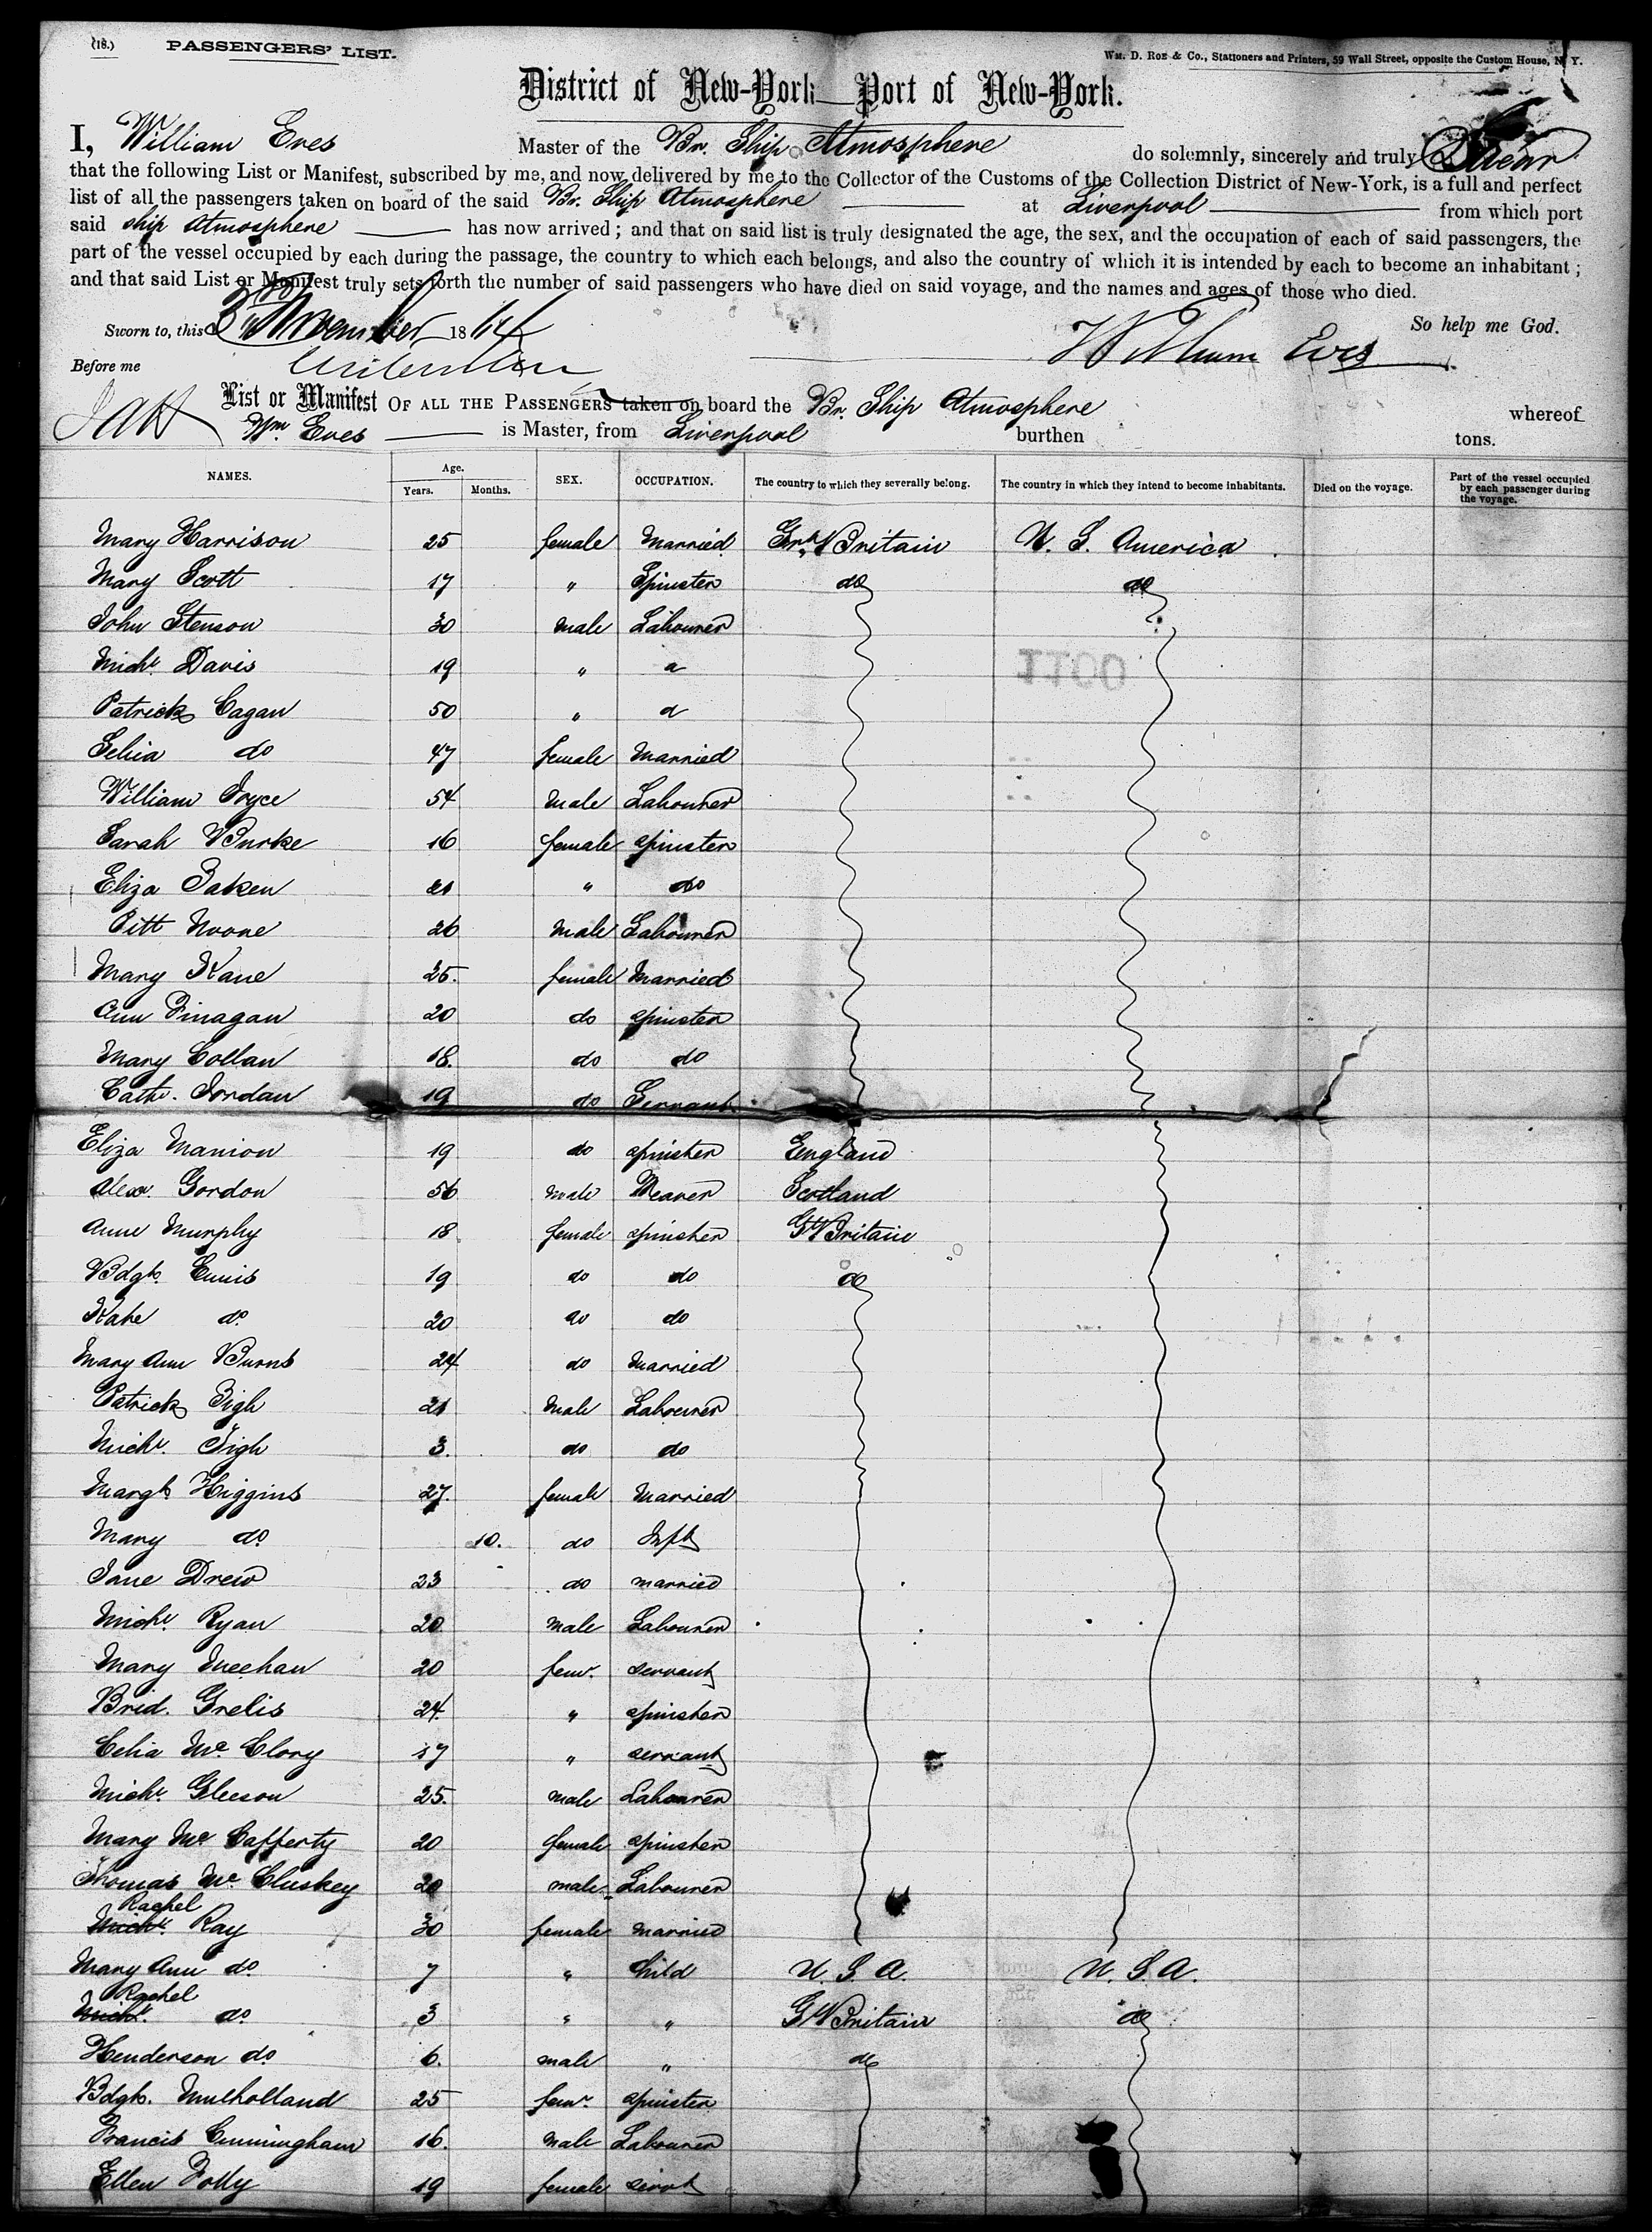 (18.) PASSENGERS' LIST. Wm. D. Roe & Co., Stationers and Printers, 59 Wall Street, opposite the Custom House, N. Y.
District of New-York—Port of New-York.
I, William Eves Master of the Br. Ship Atmosphere do solemnly, sincerely and truly Swear
that the following List or Manifest, subscribed by me, and now delivered by me to the Collector of the Customs of the Collection District of New-York, is a full and perfect
list of all the passengers taken on board of the said Br. Ship Atmosphere at Liverpool from which port
said ship Atmosphere has now arrived; and that on said list is truly designated the age, the sex, and the occupation of each of said passengers, the
part of the vessel occupied by each during the passage, the country to which each belongs, and also the country of which it is intended by each to become an inhabitant;
and that said List or Manifest truly sets forth the number of said passengers who have died on said voyage, and the names and ages of those who died.
Sworn to, this 3 November 1864 So help me God.
William Eves
Before me
List or Manifest OF ALL THE PASSENGERS taken on board the Br. Ship Atmosphere whereof
Wm Eves is Master, from Liverpool burthen tons.
NAMES. Age. Years. Months. SEX. OCCUPATION. The country to which they severally belong. The country in which they intend to become inhabitants. Died on the voyage. Part of the vessel occupied by each passenger during the voyage.
Mary Harrison 25 female Married Grt Britain U. S. America
Mary Scott 17 " Spinster do do
John Stenson 30 male Labourer
Michl. Davis 19 " "
Patrick Cagan 50 " "
Selia do 47 female Married
William Joyce 54 male Labourer
Sarah Burke 16 female spinster
Eliza 21 " do
Pitt Noone 26 male Labourer
Mary Kane 25. female Married
Ann Finagan 20 do spinster
Mary Collan 18. do do
Cath. Jordan 19 do Servant
Eliza Manion 19 do spinster England
Alexr. Gordon 56 male Weaver Scotland
Anne Murphy 18 female spinster Gt Britain
Bdgt. Ennis 19 do do do
Kate do. 20 do do
Mary Ann Burns 24 do Married
Patrick Tigh 21 male Labourer
Michl. Tigh 3. do do
Margt Higgins 27. female Married
Mary do. 10. do Inft
Jane Drew 23 do married
Michl. Ryan 20 male Labourer
Mary Meehan 20 fem. servant
Brid. Grelis 24. " spinster
Celia Mc. Clory 17 " servant
Michl. Gleeson 25. male Labourer
Mary Mc Cafferty 20 female spinster
Thomas Mc Cluskey 20 male Labourer
Rachel
Michl. Ray 30 female married
Mary Ann do. 7 " Child U. S. A. U. S. A.
Rachel
Michl. do. 3 " " Gt Britain do
Henderson do. 6. male " do
Bdgt. Mulholland 25 femr. spinster
Francis Cunningham 16. male Labourer
Ellen Folly 19 female servt